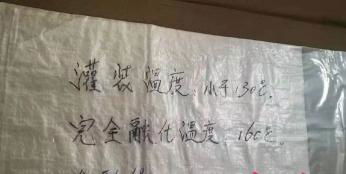 灌装温度:小于130℃.
完全融化温度:160℃.